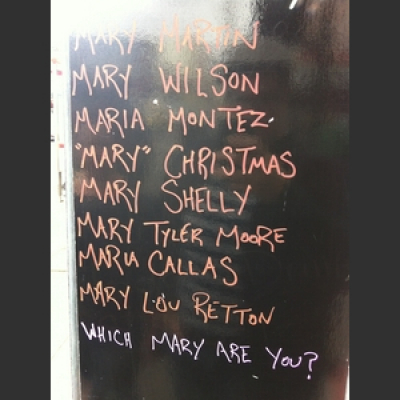 MARY MARTIN
MARY WILSON
MARIA MONTEZ
"MARY" CHRISTMAS
MARY SHELLY
MARY TYLER MOORE
MARIA CALLAS
MARY LOU RETTON
WHICH MARY ARE YOU?